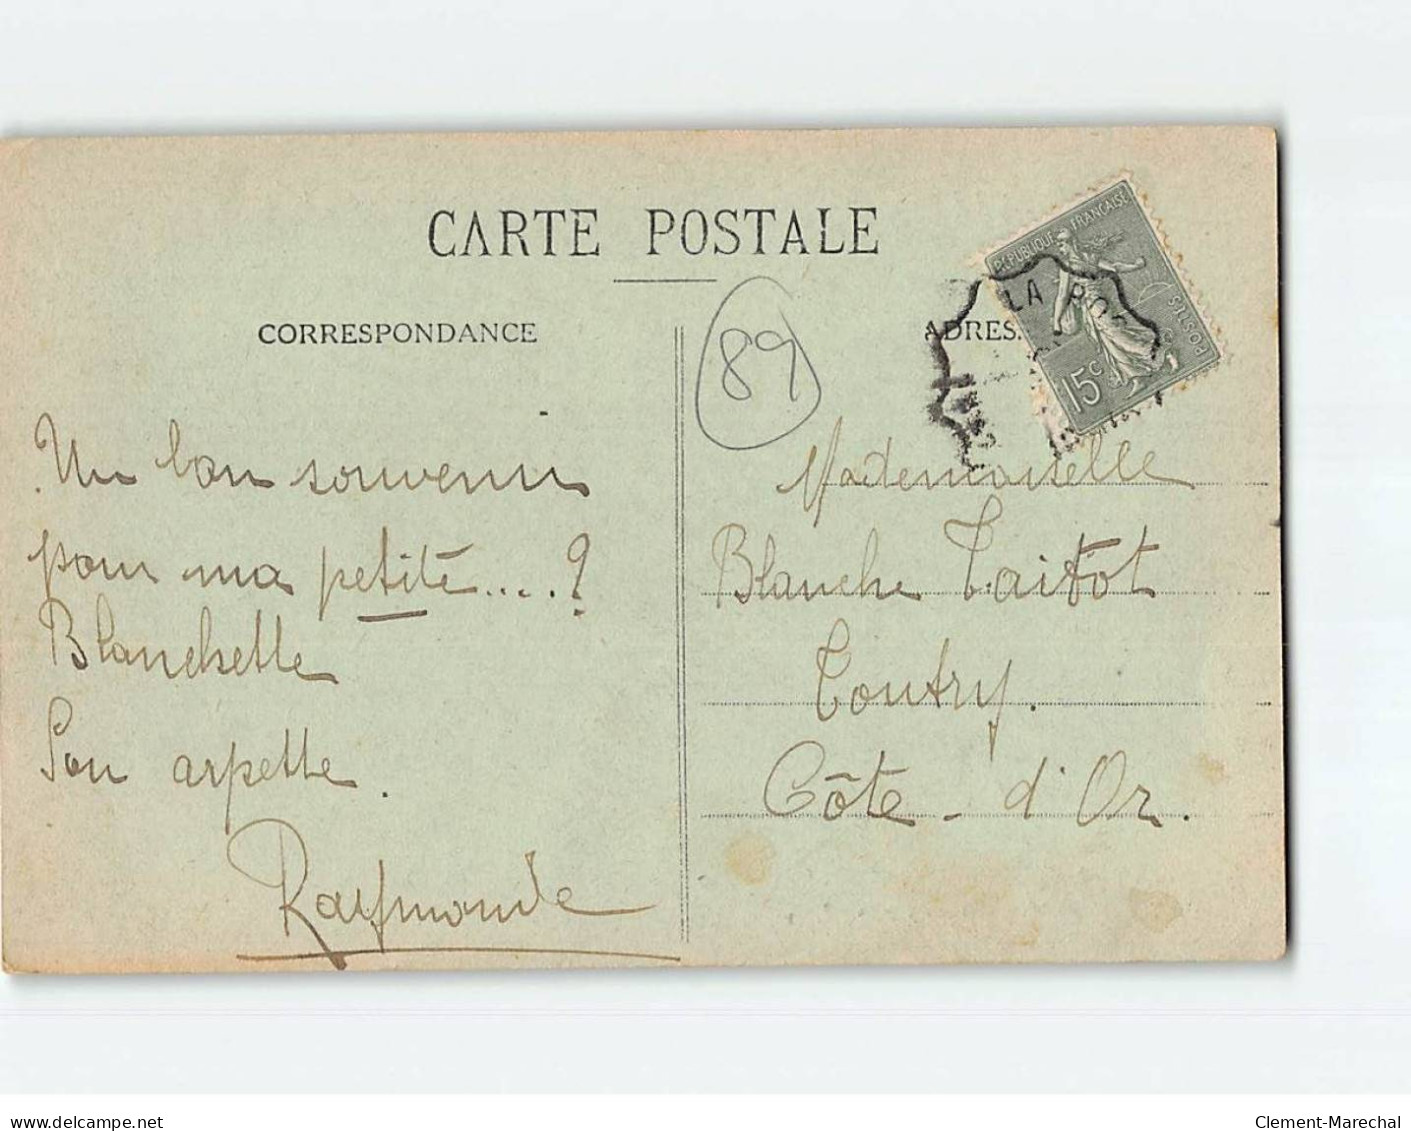 CARTE POSTALE
CORRESPONDANCE
ADRES
89
RÉPUBLIQUE FRANÇAISE
POSTES
15c
LA RO
Un bon souvenir
pour ma petite....?
Blanchette
Son arpette.
Raymonde
Mademoiselle
Blanche Taitot
Toutry.
Côte-d'Or.
www.delcampe.net
Clement-Marechal